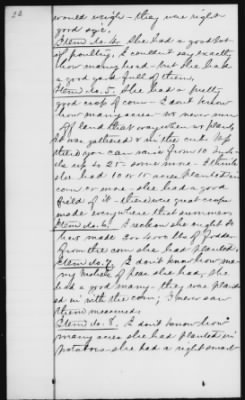 22
would weigh - they was right
good size.
Item No. 4. She had a good lot
of poultry. I couldn't say exactly
how many head - but she had
a good yard full of them.
Item no. 5. She had a pretty
good crop of corn - I don't know
how many acres - we never run
off land that way when we plant
it was gathered & in the crib. Up
there you can raise from 10 to
up to 25. some more. I think
she had 10 or 15 acres planted in
corn or more - she had a good
field of it - there was great crops
made everywhere that summer.
Item no. 6. I reckon she ought to
have made 300 or 400 lbs of fodder
from the corn she had planted.
Item no. 7. I don't know how ma
ny bushels of peas she had, she
had a good many - they was plant
ed in with the corn; I never saw
them measured.
Item No. 8. I don't know how
many acres she had planted in
potatoes - she had a right smart